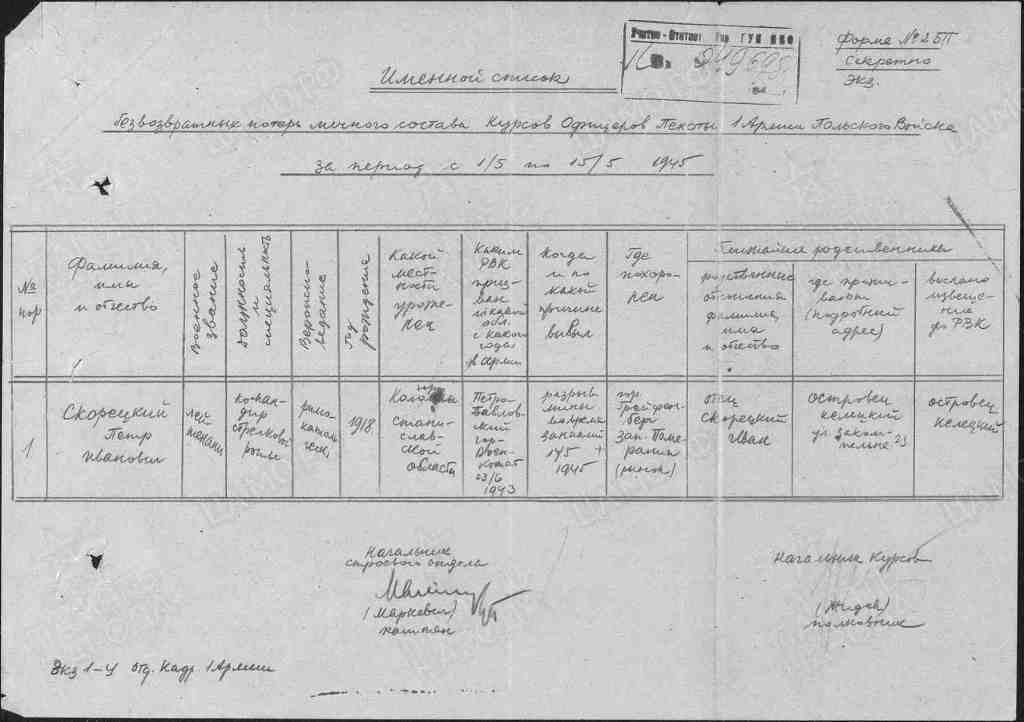 Учетно-Статист
249698
Форма № 2 БП
Секретно
Экз.
Именной список
безвозвратных потерь личного состава Курсов Офицеров Пехоты 1 Армии Польского Войска
за период с 1/5 по 15/5 1945
№ пор
Фамилия, имя и отчество
Военное звание
Должность и специальность
Вероисповедание
Год рождения
Какой местности уроженец
Каким РВК призван какой обл. с какого года в Армии
Когда и по какой причине выбыл
Где похоронен
Ближайшие родственники
родственные отношения фамилия, имя и отчество
где проживают (подробный адрес)
выслано извещение до РВК
1
Скорецкий
Петр
Иванович
лейтенант
командир
стрелковой
роты
римо
католическ
1918
гор.
Станиславской
области
Петропавловский
гор-
военкомат
1943
разрыв
мины
во время
занятий
1945
гор.
Грейфенберг
зап. Померания
(рынок)
отец
Скорецкий
Иван
островец
келецкий
островец
келецкий
Начальник
строевого отдела
(Маркевич)
капитан
Начальник Курсов
полковник
Экз 1-й отд. Кадр 1 Армии
ЦАМО РФ